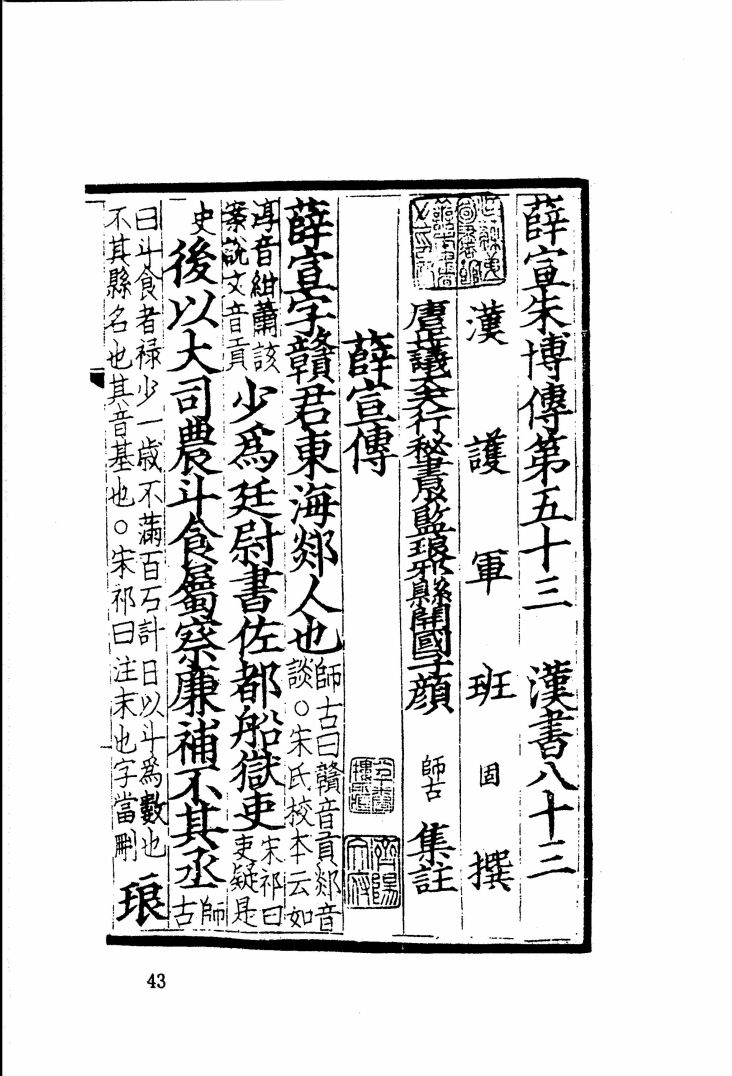 薛宣朱博傳第五十三　漢書八十三
漢護軍班固撰
唐正議大夫行祕書少監琅邪縣開國子顏師古集註
薛宣傳
薛宣字贛君東海郯人也師古曰贛音貢郯音談○宋氏校本云如
淳音紺蕭該案說文音貢少爲廷尉書佐都船獄吏宋祁曰吏疑是
史後以大司農斗食屬察廉補不其丞師古
曰斗食者祿少一歲不滿百石計日以斗爲數也不其縣名也其音基也○宋祁曰注末也字當刪琅
43